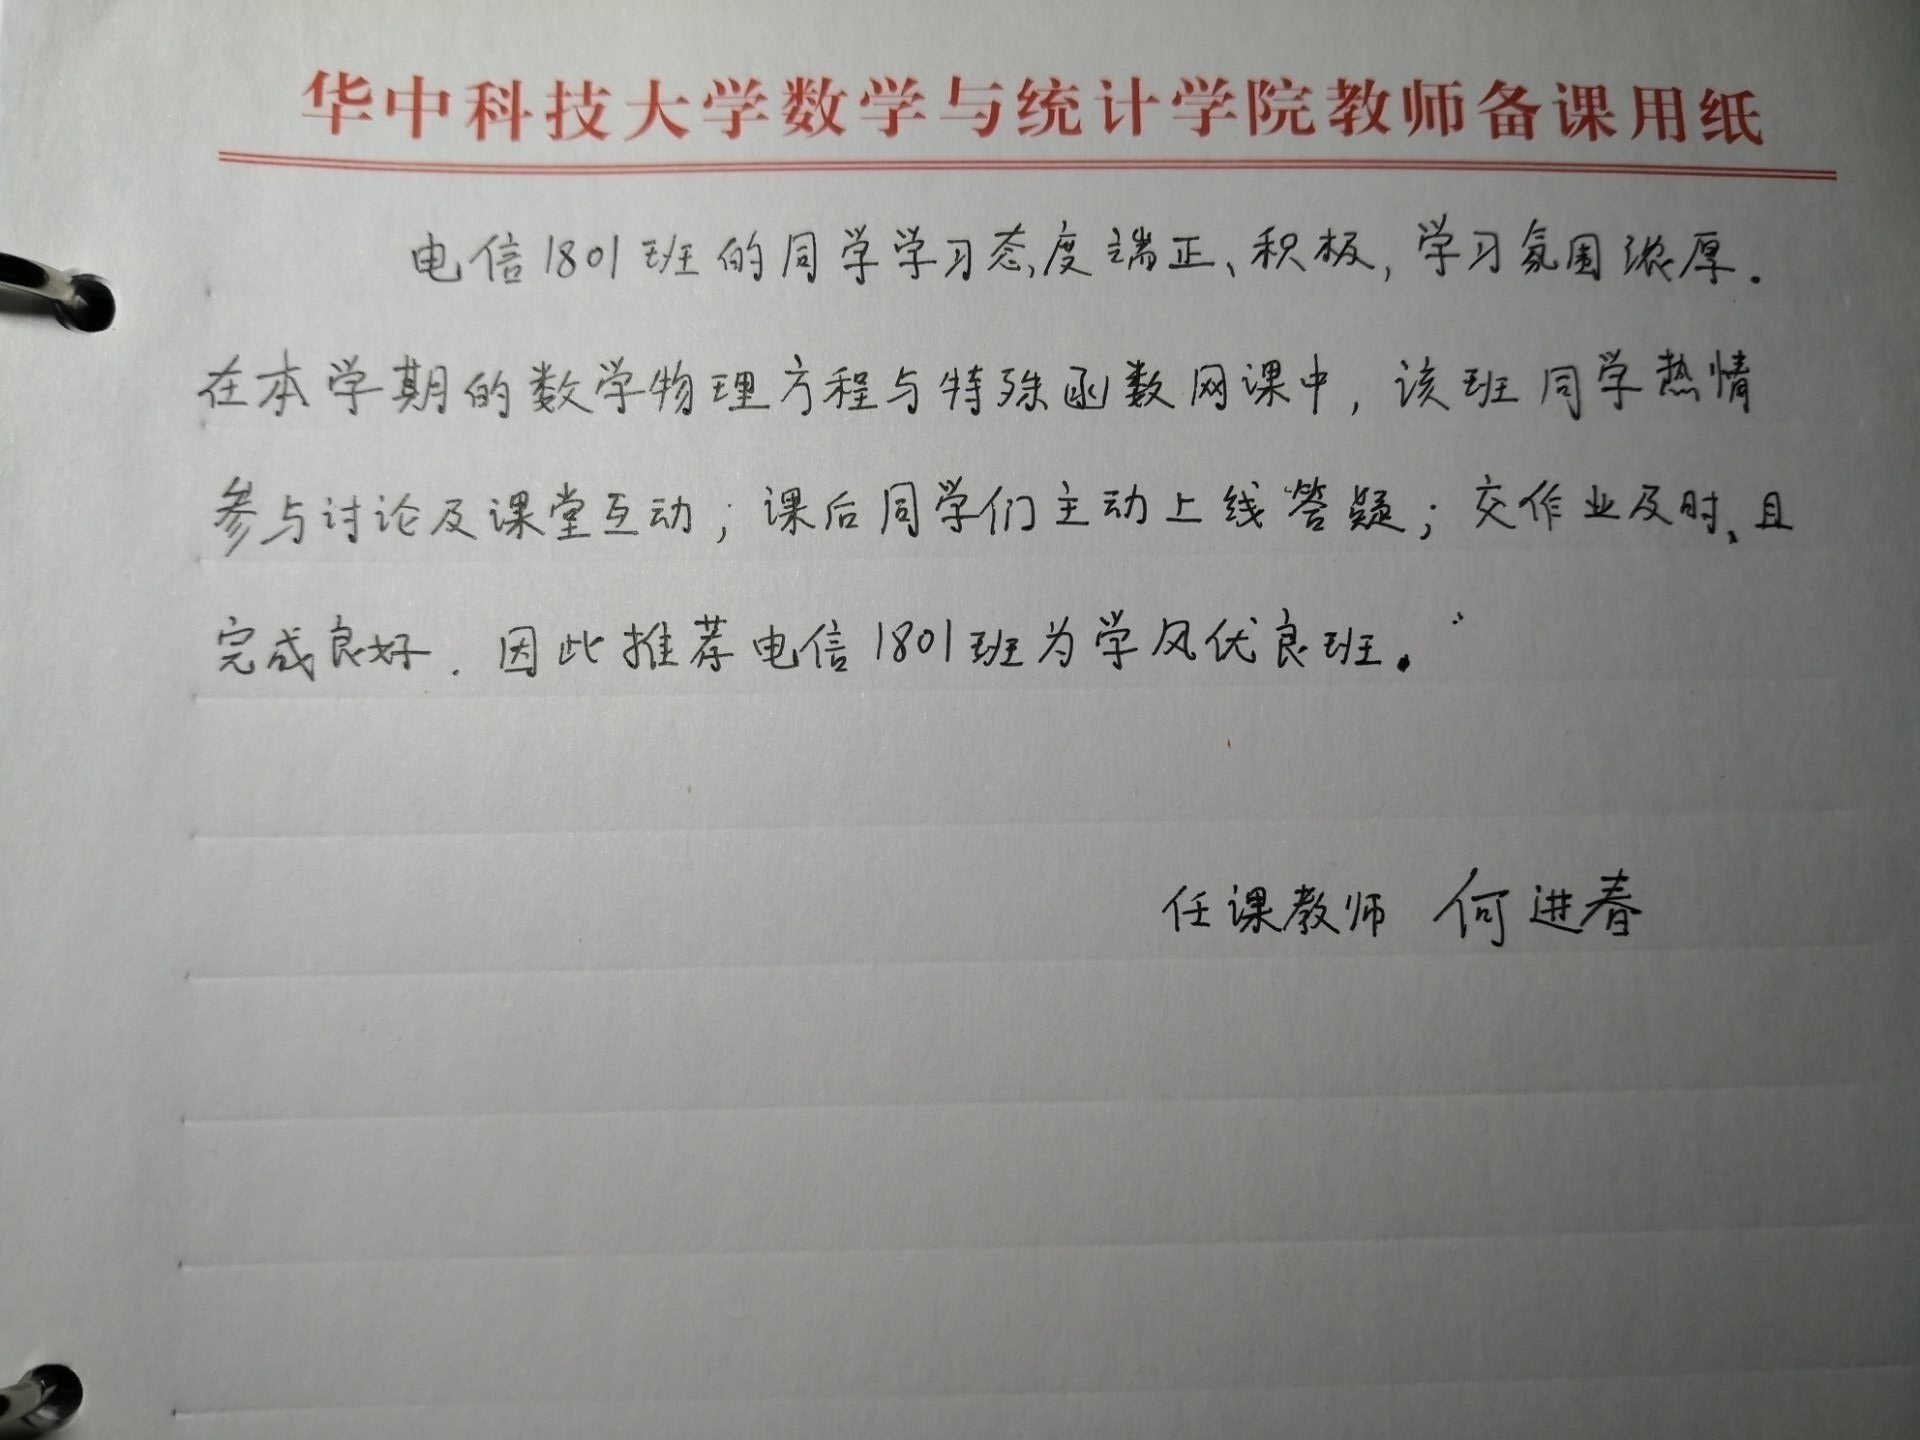 华中科技大学数学与统计学院教师备课用纸
电信1801班的同学学习态度端正、积极，学习氛围浓厚.
在本学期的数学物理方程与特殊函数网课中，该班同学热情
参与讨论及课堂互动；课后同学们主动上线答疑；交作业及时、且
完成良好.因此推荐电信1801班为学风优良班.
任课教师 何进春